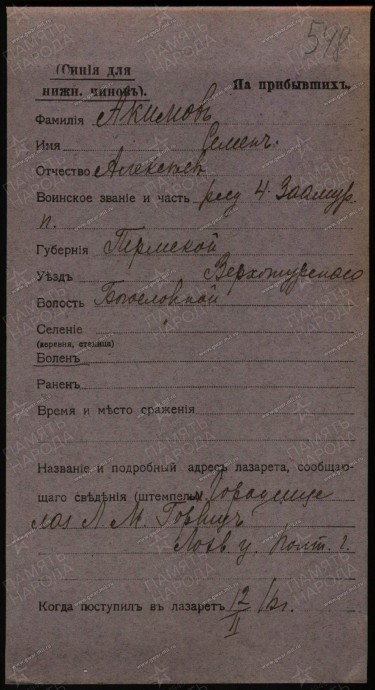 548
(Синія для
нижн. чиновъ).
На прибывшихъ.
Фамилія Акимовъ
Имя Семенъ
Отчество Алексѣев
Воинское званіе и часть ряд 4 Заамур
п.
Губернія Пермской
Уѣздъ Верхотурскаго
Волость Богословской
Селеніе
(деревня, станица)
Боленъ
Раненъ
Время и мѣсто сраженія
Названіе и подробный адресъ лазарета, сообщаю-
щаго свѣдѣнія (штемпель) Городище
лаз Л. М. Горвицъ
у. Полт. г.
Когда поступилъ въ лазаретъ 12/II